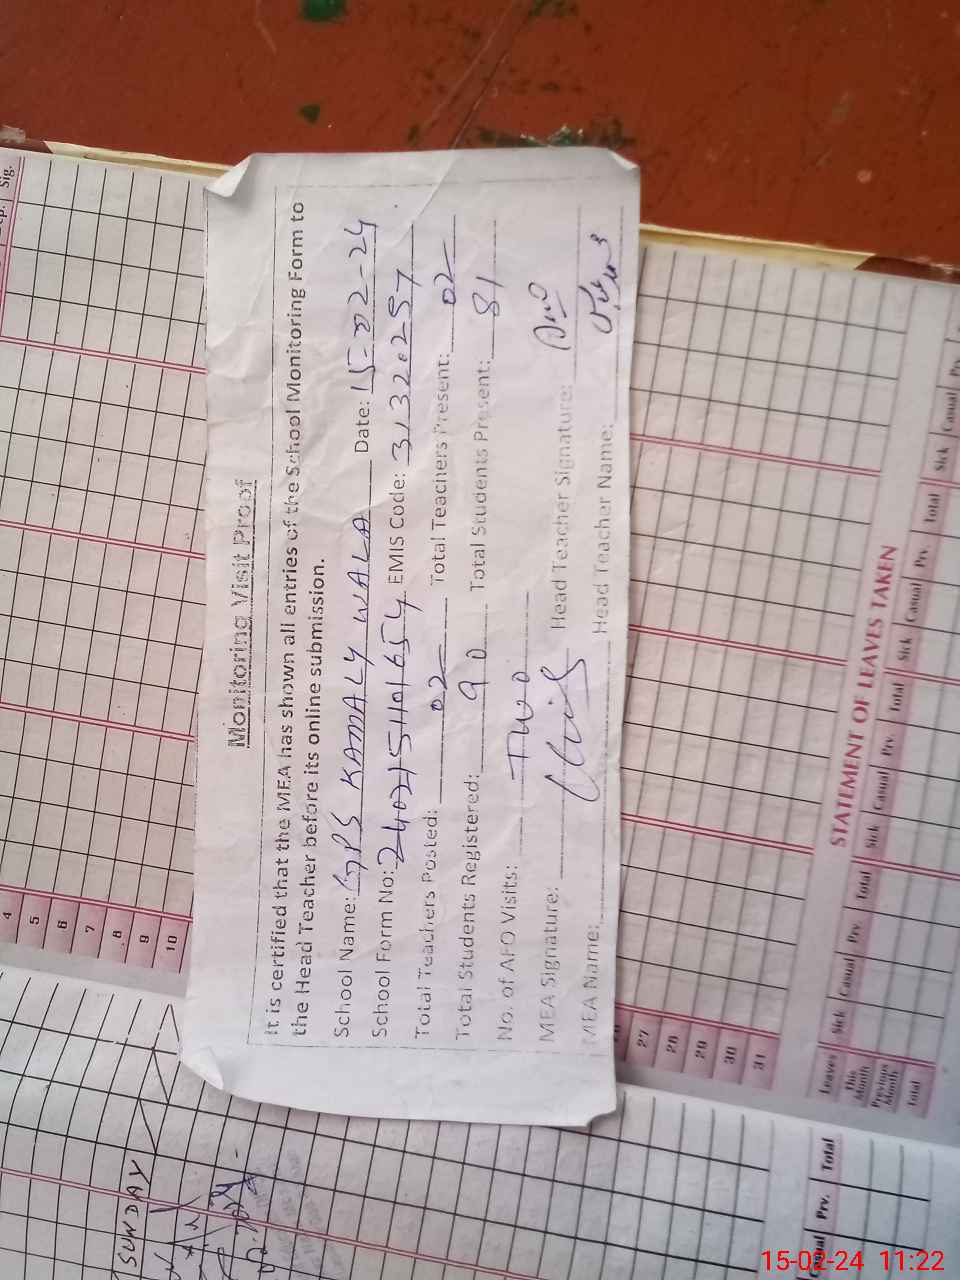 Monitoring Visit Proof
It is certified that the MEA has shown all entries of the School Monitoring Form to
the Head Teacher before its online submission.
School Name: GPS KAMALY WALA Date: 15-02-24
School Form No: 2402151101654 EMIS Code: 31320257
Total Teachers Posted: 02 Total Teachers Present: 02
Total Students Registered: 90 Total Students Present: 81
No. of AEO Visits: TWO
MEA Signature: Head Teacher Signature:
MEA Name: Head Teacher Name:
Sig.
4
5
6
7
8
9
10
27
28
29
30
31
STATEMENT OF LEAVES TAKEN
Leaves Sick Casual Prv. Total Sick Casual Prv. Total Sick Casual Prv. Total Sick Casual Prv.
This Month
Previous Month
Total
Casual Prv. Total
SUNDAY
15-02-24 11:22